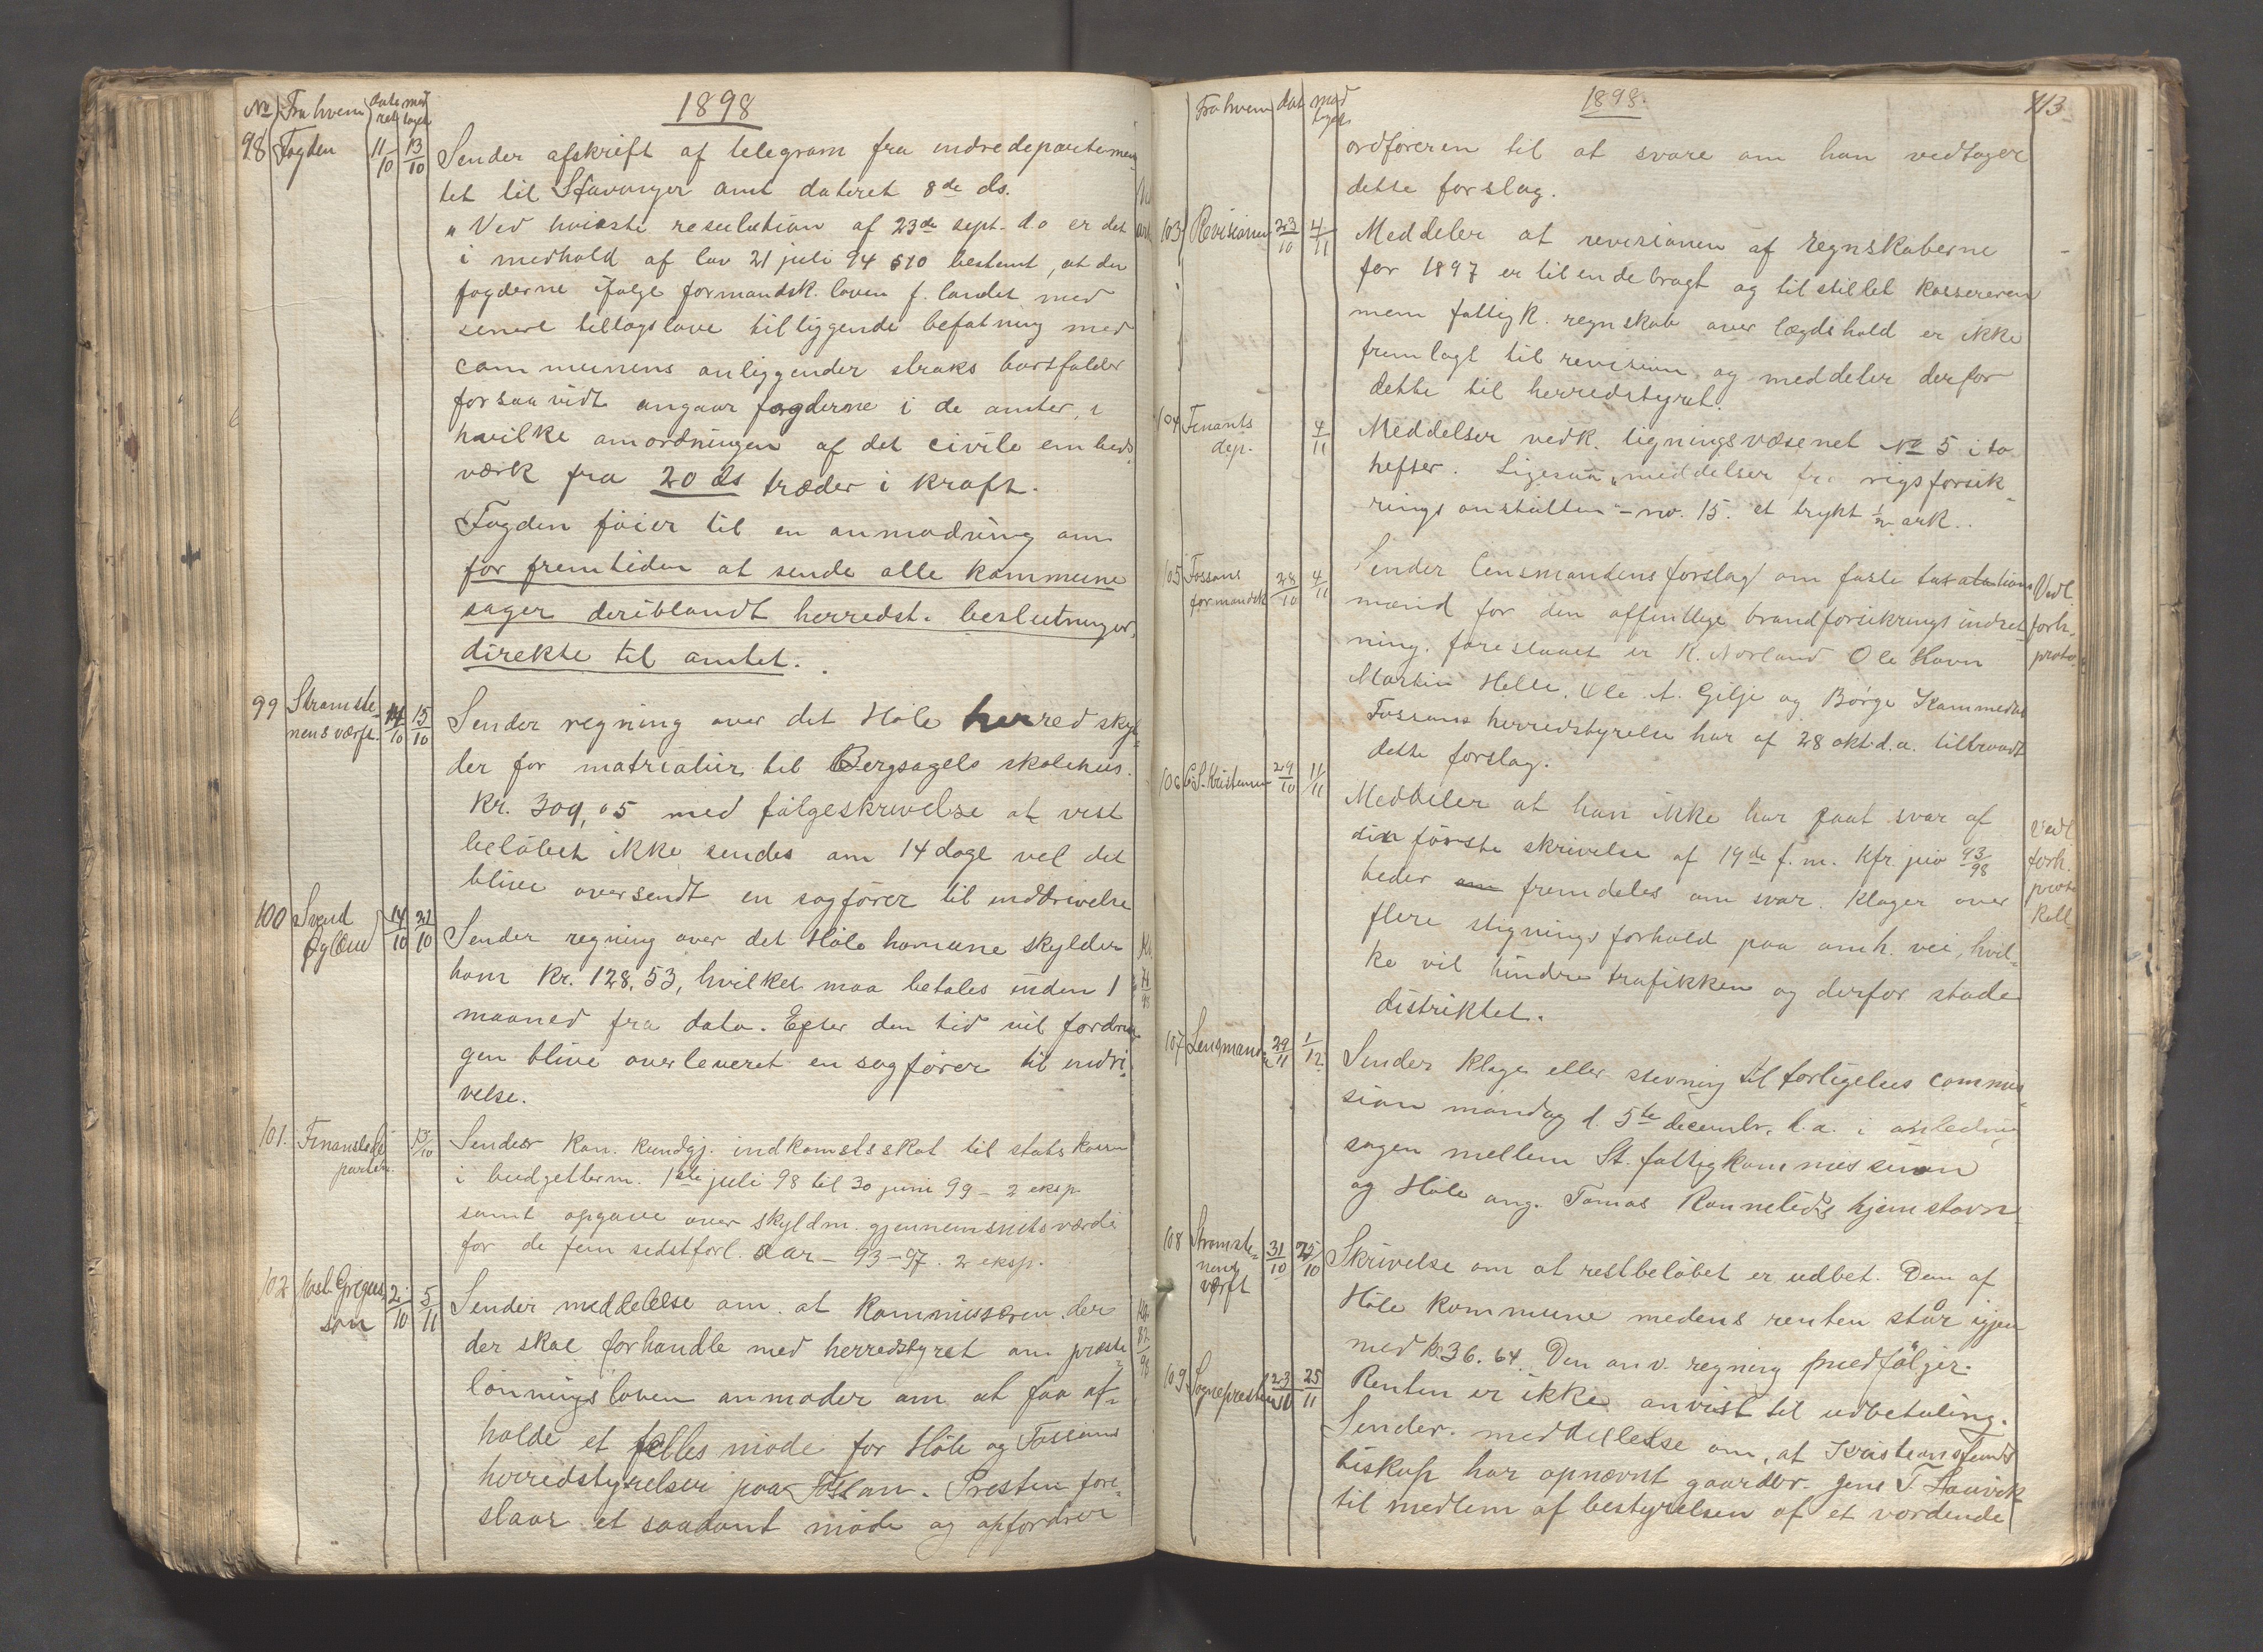 No Fra hvem dateret modtaget
1898
98 Fogden 11/10 13/10 Sender afskrift af telegram fra indredepartemen
tet til Stavanger amt dateret 8de ds.
"Ved høieste resulution af 23de sept. d.o er det
i medhold af lov 21 juli 94 §10 bestemt, at den
fogderne ifølge formandsk. loven f. landet med
senere tillægslove tilliggende befatning med
communens anliggender straks bortfalder
forsaavidt angaar fogderne i de amter, i
hvilke anordningen af det civile embeds
værk fra 20 ds træder i kraft.
Fogden føier til en anmodning om
for fremtiden at sende alle kommune
sager deriblandt herredst. beslutninger,
direkte til amtet.
99 Strømste-
nens værft. 14/10 15/10 Sender regning over det Høle herred skyl-
der for matrialier til Bergsagels skolehus.
Kr. 309,05 med følgeskrivelse at vist
beløbet ikke sendes om 14 dage vel det
blive oversendt en sagfører til inddrivelse
100 Svend
Øglænd 14/10 21/10 Sender regning over det Høle komune skylder
ham Kr. 128,53, hvilket maa betales inden 1
maaned fra dato. Efter den tid vil fordrin
gen blive overleveret en sagfører til indri-
velse.
101. Finantsde
partem. 15/10 Sender kon. kundgj. indkomstsskat til statskassen
i budgetterm. 1ste juli 98 til 30 juni 99 - 2 eksp.
samt opgave over skyldm. gjennemsnitsværdi
for de fem sidstforl. aar - 93-97. 2 eksp.
102 Past. Gregus
son 2/10 5/11 Sender meddelelse om at kommissæren der
der skal forhandle med herredstyret om præste
lønningsloven anmoder om at faa af-
holde et fælles møde for Høle og Fossans
herredstyrelser paa Fossan. Presten fore-
slaar et saadant møde og opfordrer
Fra hvem dat modtaget
1898.
113
ordføreren til at svare om han vedtager
dette forslag.
103 Revisionen 23/10 4/11 Meddeler at revisionen af regnskaberne
for 1897 er tilendebragt og tilstillet kassereren
men fattigk. regnskab over lægdshold er ikke
fremlagt til revision og meddeler derfor
dette til herredstyret.
104 Finants
dep. 4/11 Meddelser vedk. ligningsvæsenet No 5 i to
hefter. Ligesaa "meddelser fr. rigsforsik-
ringsanstalten" - no. 15. et trykt 1/2 ark.
105 Fossans
formandsk 28/10 4/11 Sender lensmandens forslag om faste taxations
mænd for den offentlige brandforsikringsindret
ning. foreslaaet er K. Norland Ole Havn
Martin Helle, Ole A. Gilje og Børge Kommedal
Fossans herredstyrelse har af 28 okt. d.a. tiltraadt
dette forslag.
Vedl.
forh.
proto.
106 C. S. Kristensen 29/10 11/11 Meddeler at han ikke har faat svar af
din første skrivelse af 19de f.m. Kfr. jrn 93/98
beder om fremdeles om svar. Klager over
flere stigningsforhold paa omh. vei, hvil-
ke vil hindre trafikken og derfor skade
distriktet.
Vedl
forh.
proto
koll
107 Lensmanden 29/11 1/12 Sender klage eller stevning til forligelses commis-
sion mandag d. 5te decembr. d.a. i anledning
sagen mellem St. fattigkommission
og Høle ang. Tomas Ranneleds hjemstavn.
108 Strømste-
nens
værft 31/10 25/10 Skrivelse om at restbeløbet er udbet. Dem af
Høle kommune medens renten står igjen
med kr. 36.64. Den anv. regning medfølger.
Renten er ikke anvist til udbetaling.
109 Sognepresten 23/10 25/11 Sender meddelelse om, at Kristianssands
biskop har opnævnt gaardbr. Jens T. Haavik
til medlem af bestyrelsen af et vordende